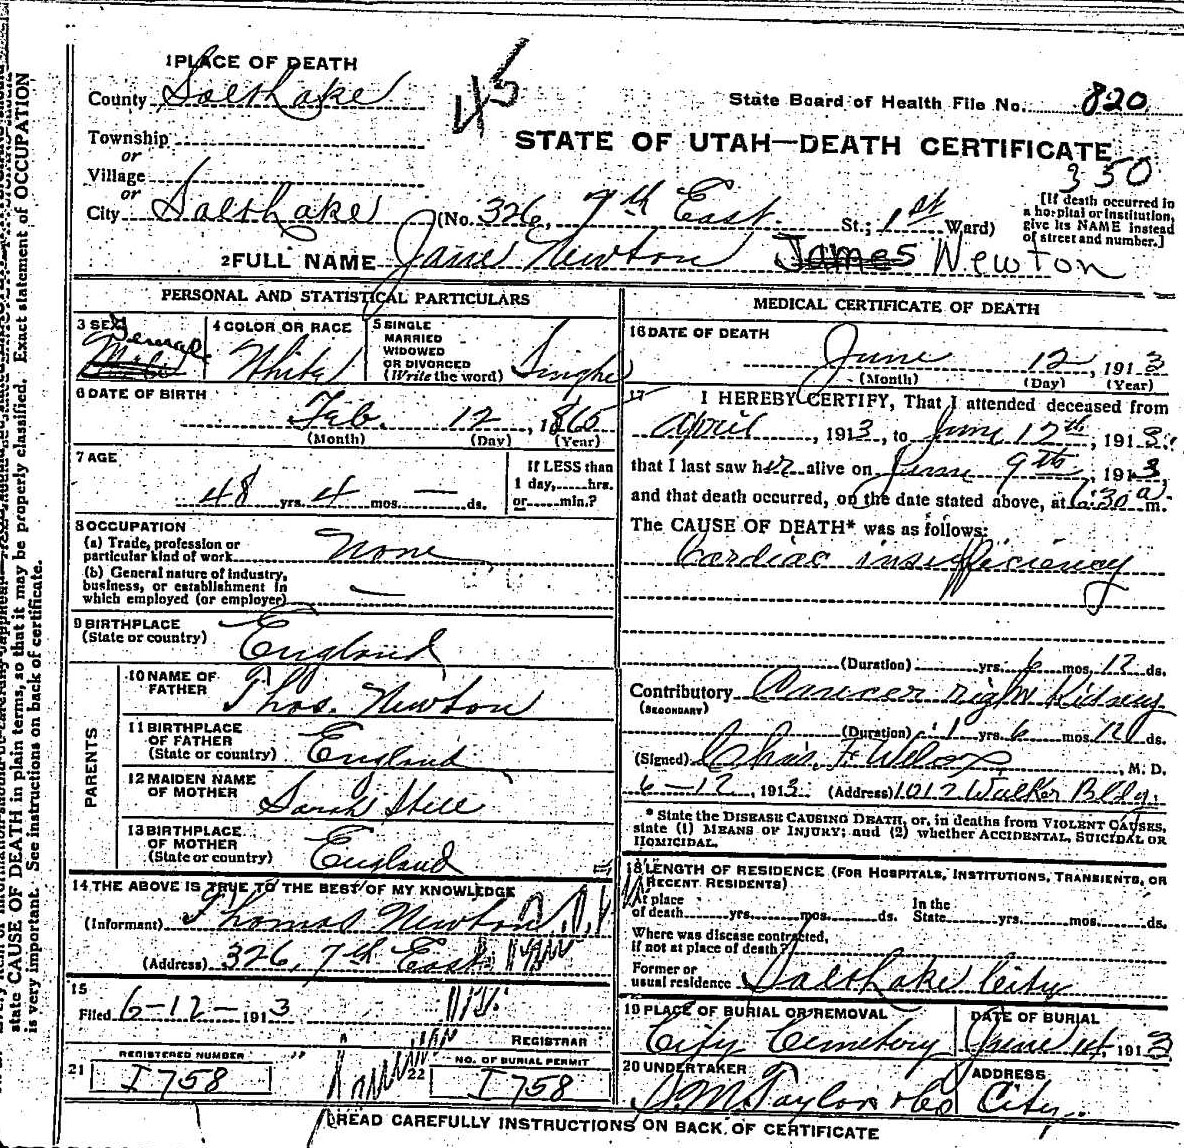 1 PLACE OF DEATH
County Salt Lake
45
State Board of Health File No. 820
Township
or
Village
or
STATE OF UTAH—DEATH CERTIFICATE
350
City Salt Lake (No. 326, 7th East St.; 1st Ward)
[If death occurred in
a hospital or institution,
give its NAME instead
of street and number.]
2 FULL NAME Jane Newton James Newton
PERSONAL AND STATISTICAL PARTICULARS
3 SEX Female
4 COLOR OR RACE
White
5 SINGLE
MARRIED
WIDOWED
OR DIVORCED
(Write the word) Single
6 DATE OF BIRTH
Feb. 12, 1865
(Month) (Day) (Year)
7 AGE
48 yrs. 4 mos. — ds.
If LESS than
1 day, hrs.
or min.?
8 OCCUPATION
(a) Trade, profession or
particular kind of work None
(b) General nature of industry,
business, or establishment in
which employed (or employer) —
9 BIRTHPLACE
(State or country) England
PARENTS
10 NAME OF
FATHER Thos. Newton
11 BIRTHPLACE
OF FATHER
(State or country) England
12 MAIDEN NAME
OF MOTHER Sarah Still
13 BIRTHPLACE
OF MOTHER
(State or country) England
14 THE ABOVE IS TRUE TO THE BEST OF MY KNOWLEDGE
(Informant) Thomas Newton
(Address) 326, 7th East
15
Filed 6-12-1913
REGISTRAR
21 REGISTERED NUMBER
I758
22 NO. OF BURIAL PERMIT
I758
MEDICAL CERTIFICATE OF DEATH
16 DATE OF DEATH
June 12, 1913
(Month) (Day) (Year)
17 I HEREBY CERTIFY, That I attended deceased from
April, 1913, to June 12th, 1913
that I last saw her alive on June 9th, 1913
and that death occurred, on the date stated above, at 6:30 a m.
The CAUSE OF DEATH* was as follows:
Cardiac insufficiency
(Duration) yrs. 6 mos. 12 ds.
Contributory Cancer right Kidney
(SECONDARY)
(Duration) 1 yrs. 6 mos. 12 ds.
(Signed) Chas. F. Wilcox, M. D.
6-12, 1913. (Address) 1012 Walker Bldg.
* State the DISEASE CAUSING DEATH, or, in deaths from VIOLENT CAUSES,
state (1) MEANS OF INJURY; and (2) whether ACCIDENTAL, SUICIDAL OR
HOMICIDAL.
18 LENGTH OF RESIDENCE (FOR HOSPITALS, INSTITUTIONS, TRANSIENTS, OR
RECENT RESIDENTS)
At place
of death yrs. mos. ds.
In the
State yrs. mos. ds.
Where was disease contracted,
if not at place of death?
Former or
usual residence Salt Lake City
19 PLACE OF BURIAL OR REMOVAL
City Cemetery
DATE OF BURIAL
June 14, 1913
20 UNDERTAKER
S. M. Taylor & Co
ADDRESS
City
READ CAREFULLY INSTRUCTIONS ON BACK OF CERTIFICATE
state CAUSE OF DEATH in plain terms, so that it may be properly classified. Exact statement of OCCUPATION
is very important. See instructions on back of certificate.